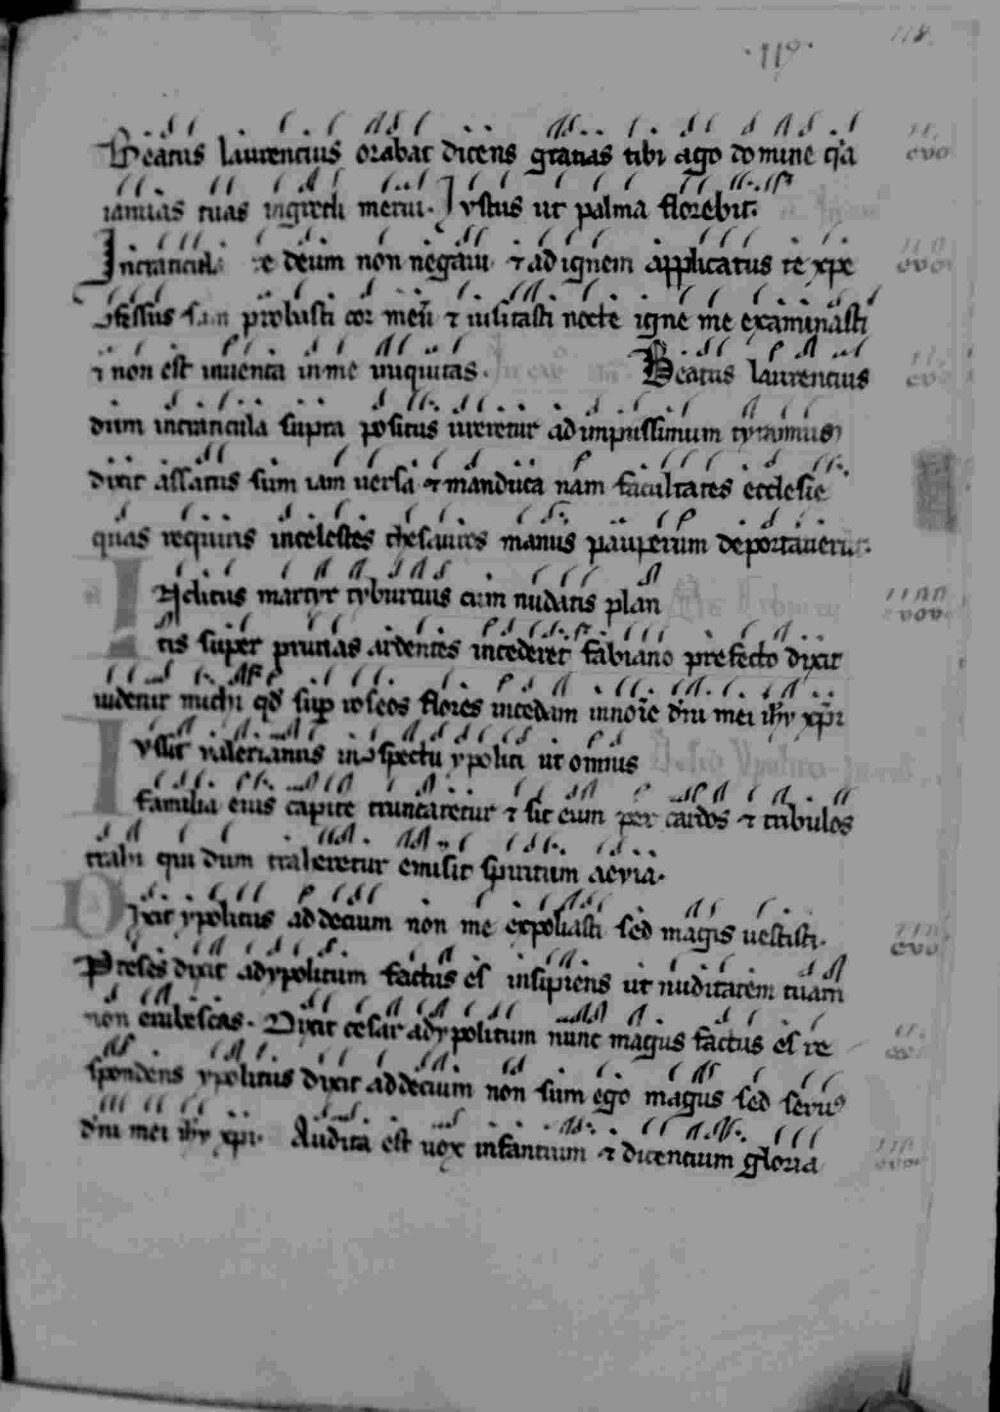 ·119· 118.
Beatus laurencius orabat dicens gratias tibi ago domine q'a
ianuas tuas ingredi merui. Iustus ut palma florebit.
Incraticula te deum non negaui ⁊ ad ignem applicatus te xpe
fessus sum probasti cor meū ⁊ uisitasti nocte igne me examinasti
⁊ non est inuenta in me iniquitas. Beatus laurencius
dum incraticula supra positus ureretur ad impiissimum tyrannum
dixit assatus sum iam uersa ⁊ manduca nam facultates ecclesie
quas requiris incelestes thesauros manus pauperum deportauerūt.
Inclitus martyr tyburcius cum nudatis plan
tis super prunas ardentes incederet fabiano prefecto dixit
uidetur michi qd sup roseos flores incedam innoīe dni mei ihu xpi
Iussit ualerianus in ɔspectu ypoliti ut omnis
familia eius capite truncaretur ⁊ sic eum per cardos ⁊ tribulos
trahi qui dum traheretur emisit spiritum aevia.
Dixit ypolitus ad decium non me expoliasti sed magis uestisti.
Preses dixit ad ypolitum factus es insipiens ut nuditatem tuam
non erubescas. Dixit cesar ad ypolitum nunc magus factus es re
spondens ypolitus dixit ad decium non sum ego magus sed seruus
dni mei ihu xpi. Audita est uox infantium ⁊ dicentium gloria